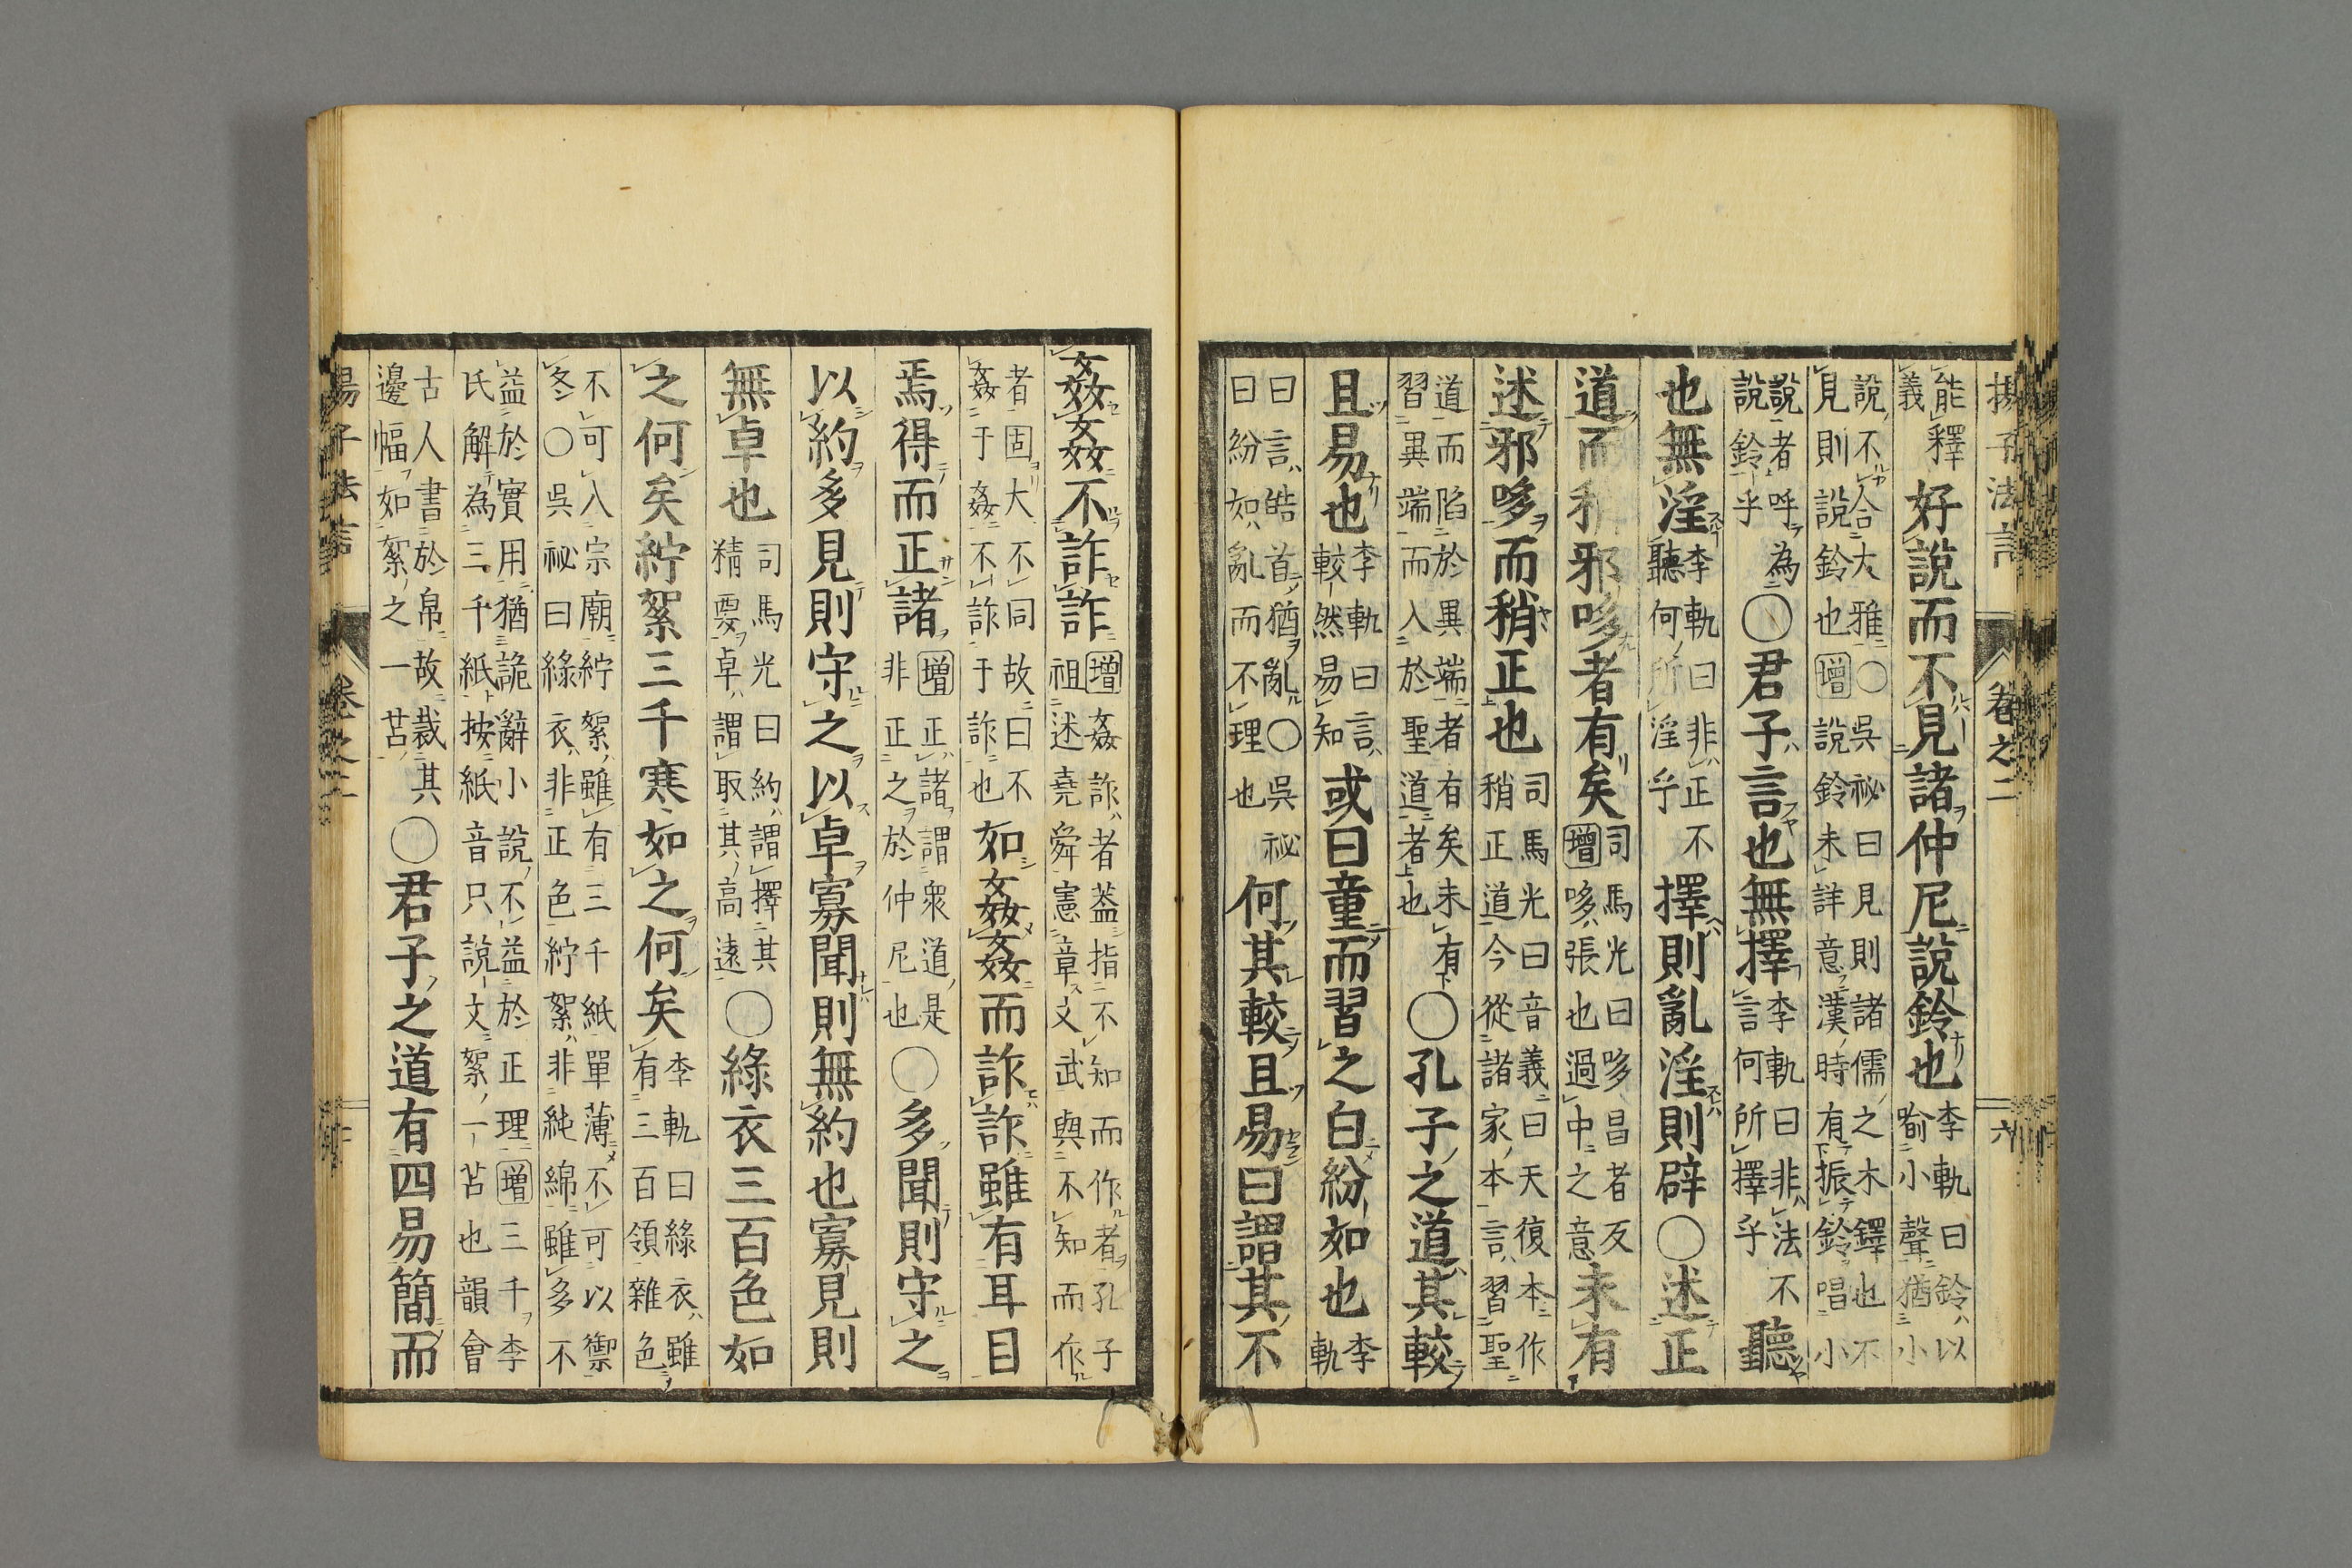 揚子法言
卷之二
六
能釋
義
好說而不見諸仲尼說鈴也
李軌曰鈴以
喻小聲猶小
說不合大雅○吳祕曰見則諸儒之木鐸也不
見則說鈴也增說鈴未詳意漢時有振鈴唱小
說者呼為
說鈴乎
○君子言也無擇
李軌曰非法不
言何所擇乎
聽
也無淫
李軌曰非正不
聽何所淫乎
擇則亂淫則辟○述正
道而稍邪哆者有矣
司馬光曰哆昌者反
增哆張也過中之意
未有
述邪哆而稍正也
司馬光曰音義曰天復本作
稍正道今從諸家本言習聖
道而陷於異端者有矣未有
習異端而入於聖道者也
○孔子之道其較
且易也
李軌曰言
較然易知
或曰童而習之白紛如也
李
軌
曰言皓首猶亂○吳祕
曰紛如亂而不理也
何其較且易曰謂其不
姦姦不詐詐
增姦詐者蓋指不知而作者孔子
祖述堯舜憲章文武與不知而作
者固大不同故曰不
姦于姦不詐于詐也
如姦姦而詐詐雖有耳目
焉得而正諸
增正諸謂衆道是
非正之於仲尼也
○多聞則守之
以約多見則守之以卓寡聞則無約也寡見則
無卓也
司馬光曰約謂擇其
精要卓謂取其高遠
○綠衣三百色如
之何矣紵絮三千寒如之何矣
李軌曰綠衣雖
有三百領雜色
不可入宗廟紵絮雖有三千紙單薄不可以禦
冬○吳祕曰綠衣非正色紵絮非純綿雖多不
益於實用猶詭辭小說不益於正理增三千李
氏解為三千紙按紙音只說文絮一苫也韻會
古人書於帛故裁其
邊幅如絮之一苫
○君子之道有四易簡而
揚子法言
卷之二